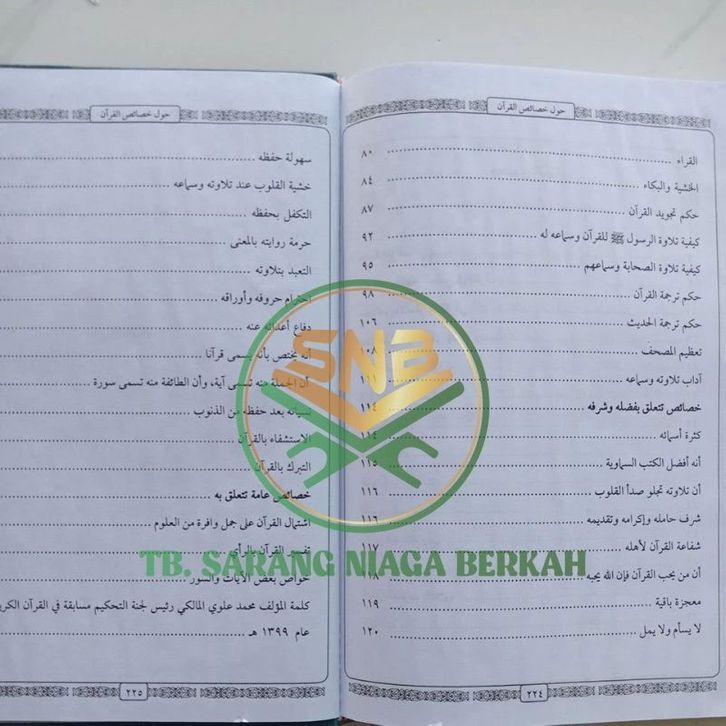 حول خصائص القرآن
القراء ........ ٨٠
الخشية والبكاء ........ ٨٤
حكم تجويد القرآن ........ ٨٧
كيفية تلاوة الرسول ﷺ للقرآن وسماعه له ........ ٩٢
كيفية تلاوة الصحابة وسماعهم ........ ٩٥
حكم ترجمة القرآن ........ ٩٨
حكم ترجمة الحديث ........ ١٠٦
تعظيم المصحف ........ ١٠٨
آداب تلاوته وسماعه ........ ١١١
خصائص تتعلق بفضله وشرفه ........ ١١٤
كثرة أسمائه ........ ١١٤
أنه أفضل الكتب السماوية ........ ١١٥
أن تلاوته تجلو صدأ القلوب ........ ١١٦
شرف حامله وإكرامه وتقديمه ........ ١١٦
شفاعة القرآن لأهله ........ ١١٧
أن من يحب القرآن فإن الله يحبه ........ ١١٨
معجزة باقية ........ ١١٩
لا يسأم ولا يمل ........ ١٢٠
٢٢٤
حول خصائص القرآن
سهولة حفظه ........
خشية القلوب عند تلاوته وسماعه ........
التكفل بحفظه ........
حرمة روايته بالمعنى ........
التعبد بتلاوته ........
احترام حروفه وأوراقه ........
دفاع أعدائه عنه ........
أنه يختص بأنه يسمى قرآنا ........
أن الجملة منه تسمى آية، وأن الطائفة منه تسمى سورة ........
نسيانه بعد حفظه من الذنوب ........
الاستشفاء بالقرآن ........
التبرك بالقرآن ........
خصائص عامة تتعلق به ........
اشتمال القرآن على جمل وافرة من العلوم ........
تفسير القرآن بالرأي ........
خواص بعض الآيات والسور ........
كلمة المؤلف محمد علوي المالكي رئيس لجنة التحكيم مسابقة في القرآن
عام ١٣٩٩ هـ ........
٢٢٥
SNB
TB. SARANG NIAGA BERKAH